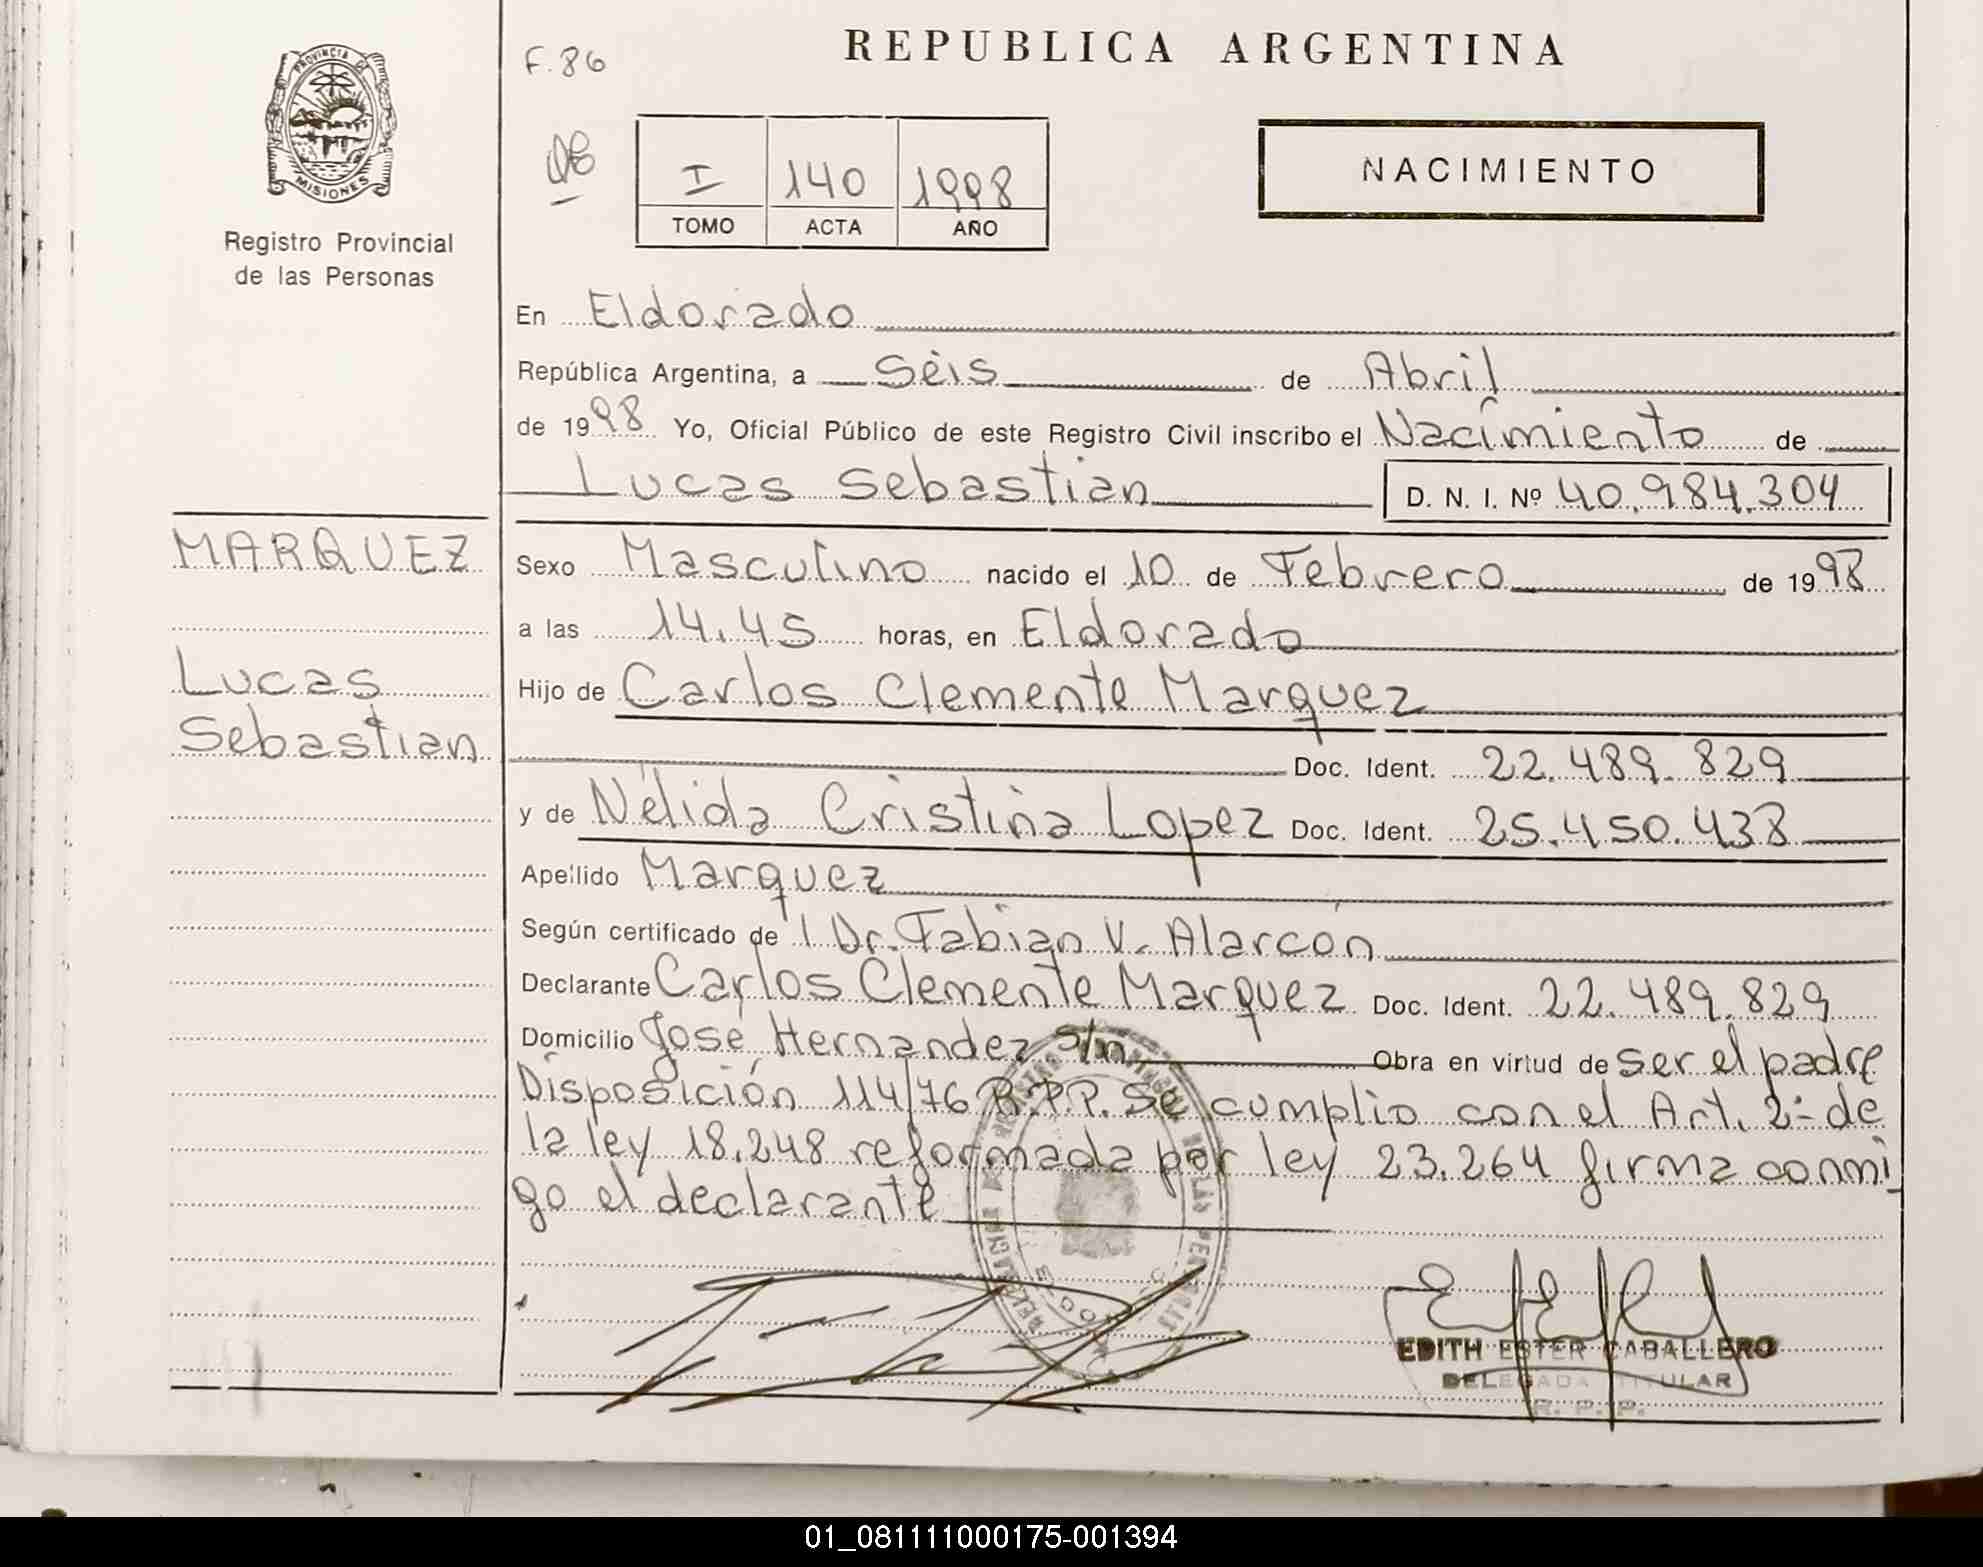 REPUBLICA ARGENTINA
F. 86
PROVINCIA DE MISIONES
Registro Provincial
de las Personas
I 140 1998
TOMO ACTA AÑO
NACIMIENTO
En Eldorado
República Argentina, a Séis de Abril
de 1998 Yo, Oficial Público de este Registro Civil inscribo el Nacimiento de
Lucas Sebastian D. N. I. Nº 40.984.304
MARQUEZ
Lucas
Sebastian
Sexo Masculino nacido el 10 de Febrero de 1998
a las 14.45 horas, en Eldorado
Hijo de Carlos Clemente Marquez
Doc. Ident. 22.489.829
y de Nélida Cristina Lopez Doc. Ident. 25.450.438
Apellido Marquez
Según certificado de Dr. Fabian V. Alarcón
Declarante Carlos Clemente Marquez Doc. Ident. 22.489.829
Domicilio José Hernandez s/n Obra en virtud de ser el padre
Disposición 114/76 R.P.P. Se cumplio con el Art. 2- de
la ley 18.248 reformada por ley 23.264 firma conmi
go el declarante
EDITH ESTER CABALLERO
DELEGADA TITULAR
R. P. P.
01_081111000175-001394